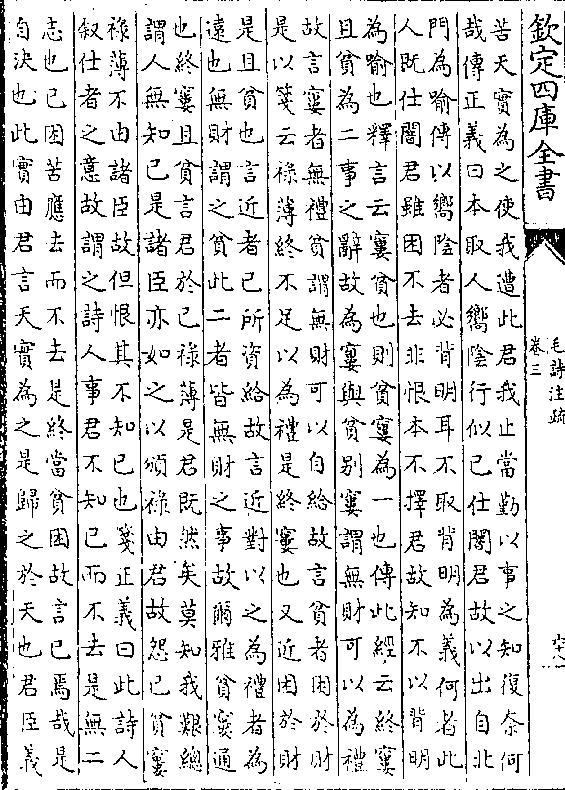 欽定四庫全書
毛詩注疏
卷三
苦天實為之使我遭此君我止當勤以事之知復奈何
哉傳正義曰本取人嚮陰行似已仕闇君故以出自北
門為喻傳以嚮陰者必背明耳不取背明為義何者此
人既仕闇君雖困不去非恨本不擇君故知不以背明
為喻也釋言云寠貧也則貧寠為一也傳此經云終寠
且貧為二事之辭故為寠與貧别寠謂無財可以為禮
故言寠者無禮貧謂無財可以自給故言貧者困於財
是以箋云祿薄終不足以為禮是終寠也又近困於財
是且貧也言近者已所資給故言近對以之為禮者為
遠也無財謂之貧此二者皆無財之事故爾雅貧寠通
也終寠且貧言君於已祿薄是君既然矣莫知我艱總
謂人無知已是諸臣亦如之以頒祿由君故怨已貧寠
祿薄不由諸臣故但恨其不知已也箋正義曰此詩人
叙仕者之意故謂之詩人事君不知已而不去是無二
志也已困苦應去而不去是終當貧困故言已焉哉是
自決也此實由君言天實為之是歸之於天也君臣義